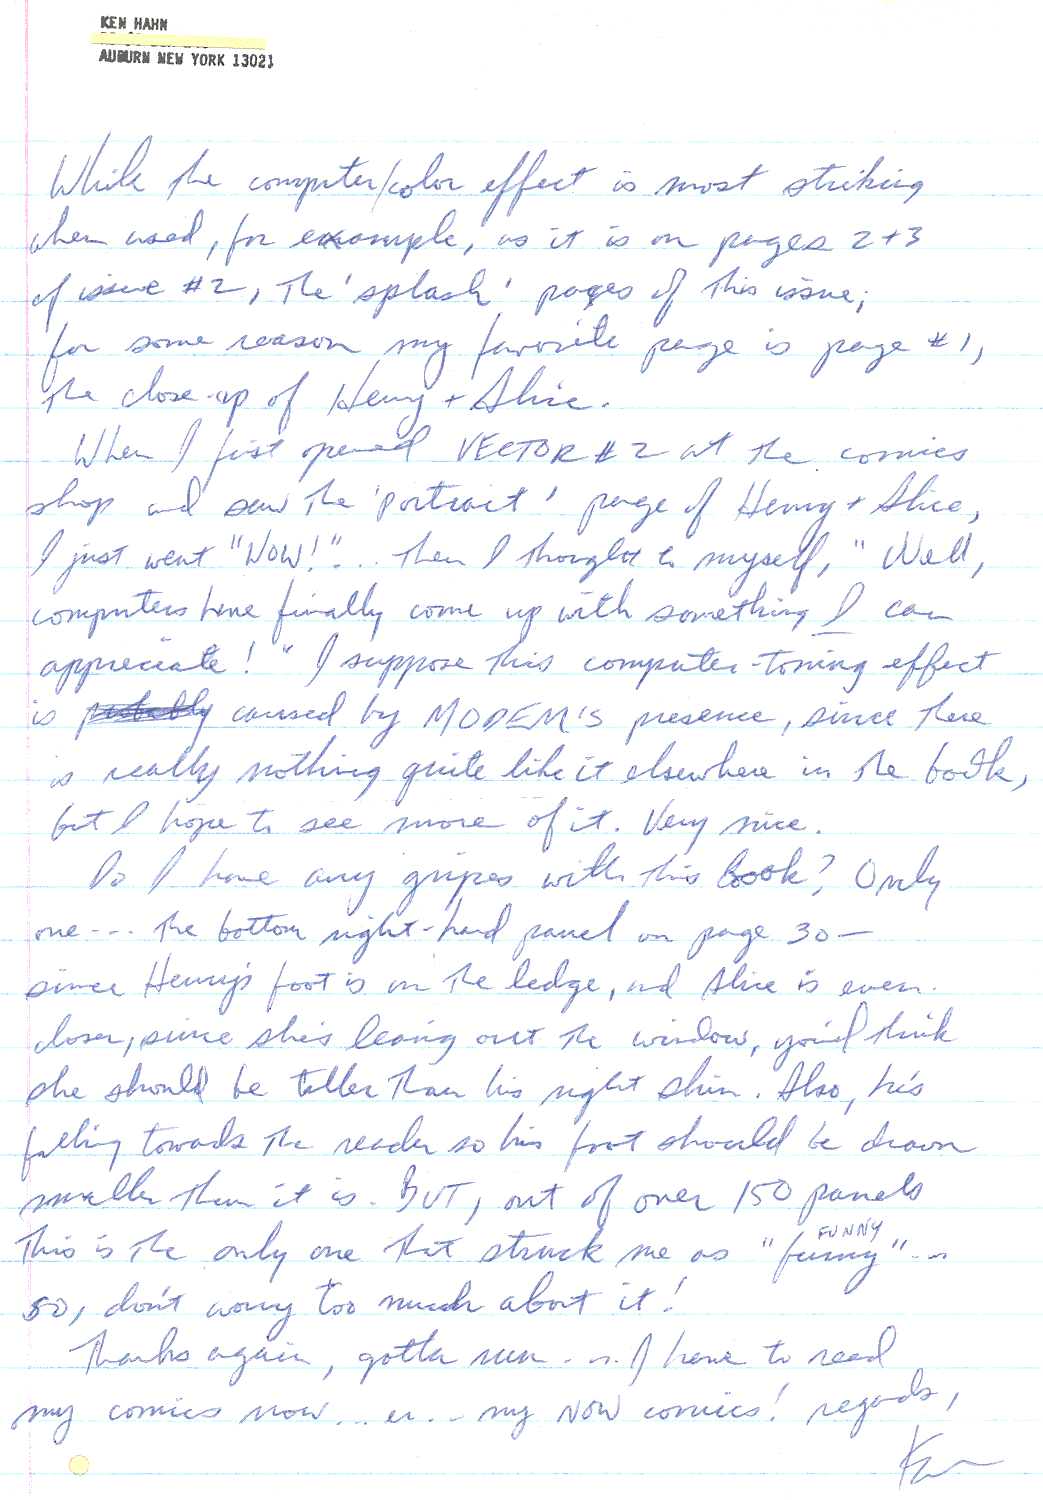 KEN HAHN
AUBURN NEW YORK 13021
While the computer/color effect is most striking
when used, for example, as it is on pages 2+3
of issue #2, the 'splash' pages of this issue;
for some reason my favorite page is page #1,
the close-up of Henry + Alice.
When I first opened VECTOR #2 at the comics
shop and saw the 'portrait' page of Henry + Alice,
I just went "WOW!"... Then I thought to myself, "Well,
computers have finally come up with something I can
appreciate!" I suppose this computer-toning effect
is caused by MODEM'S presence, since there
is really nothing quite like it elsewhere in the book,
but I hope to see more of it. Very nice.
Do I have any gripes with this book? Only
one--- the bottom right-hand panel on page 30—
since Henry's foot is on the ledge, and Alice is even
closer, since she's leaing out the window, you'd think
she should be taller than his right shin. Also, he's
falling towards the reader so his foot should be drawn
smaller than it is. BUT, out of over 150 panels
this is the only one that struck me as "funny"...
FUNNY
so, don't worry too much about it!
Thanks again, gotta run... I have to read
my comics now... er... my NOW comics! regards,
Ken